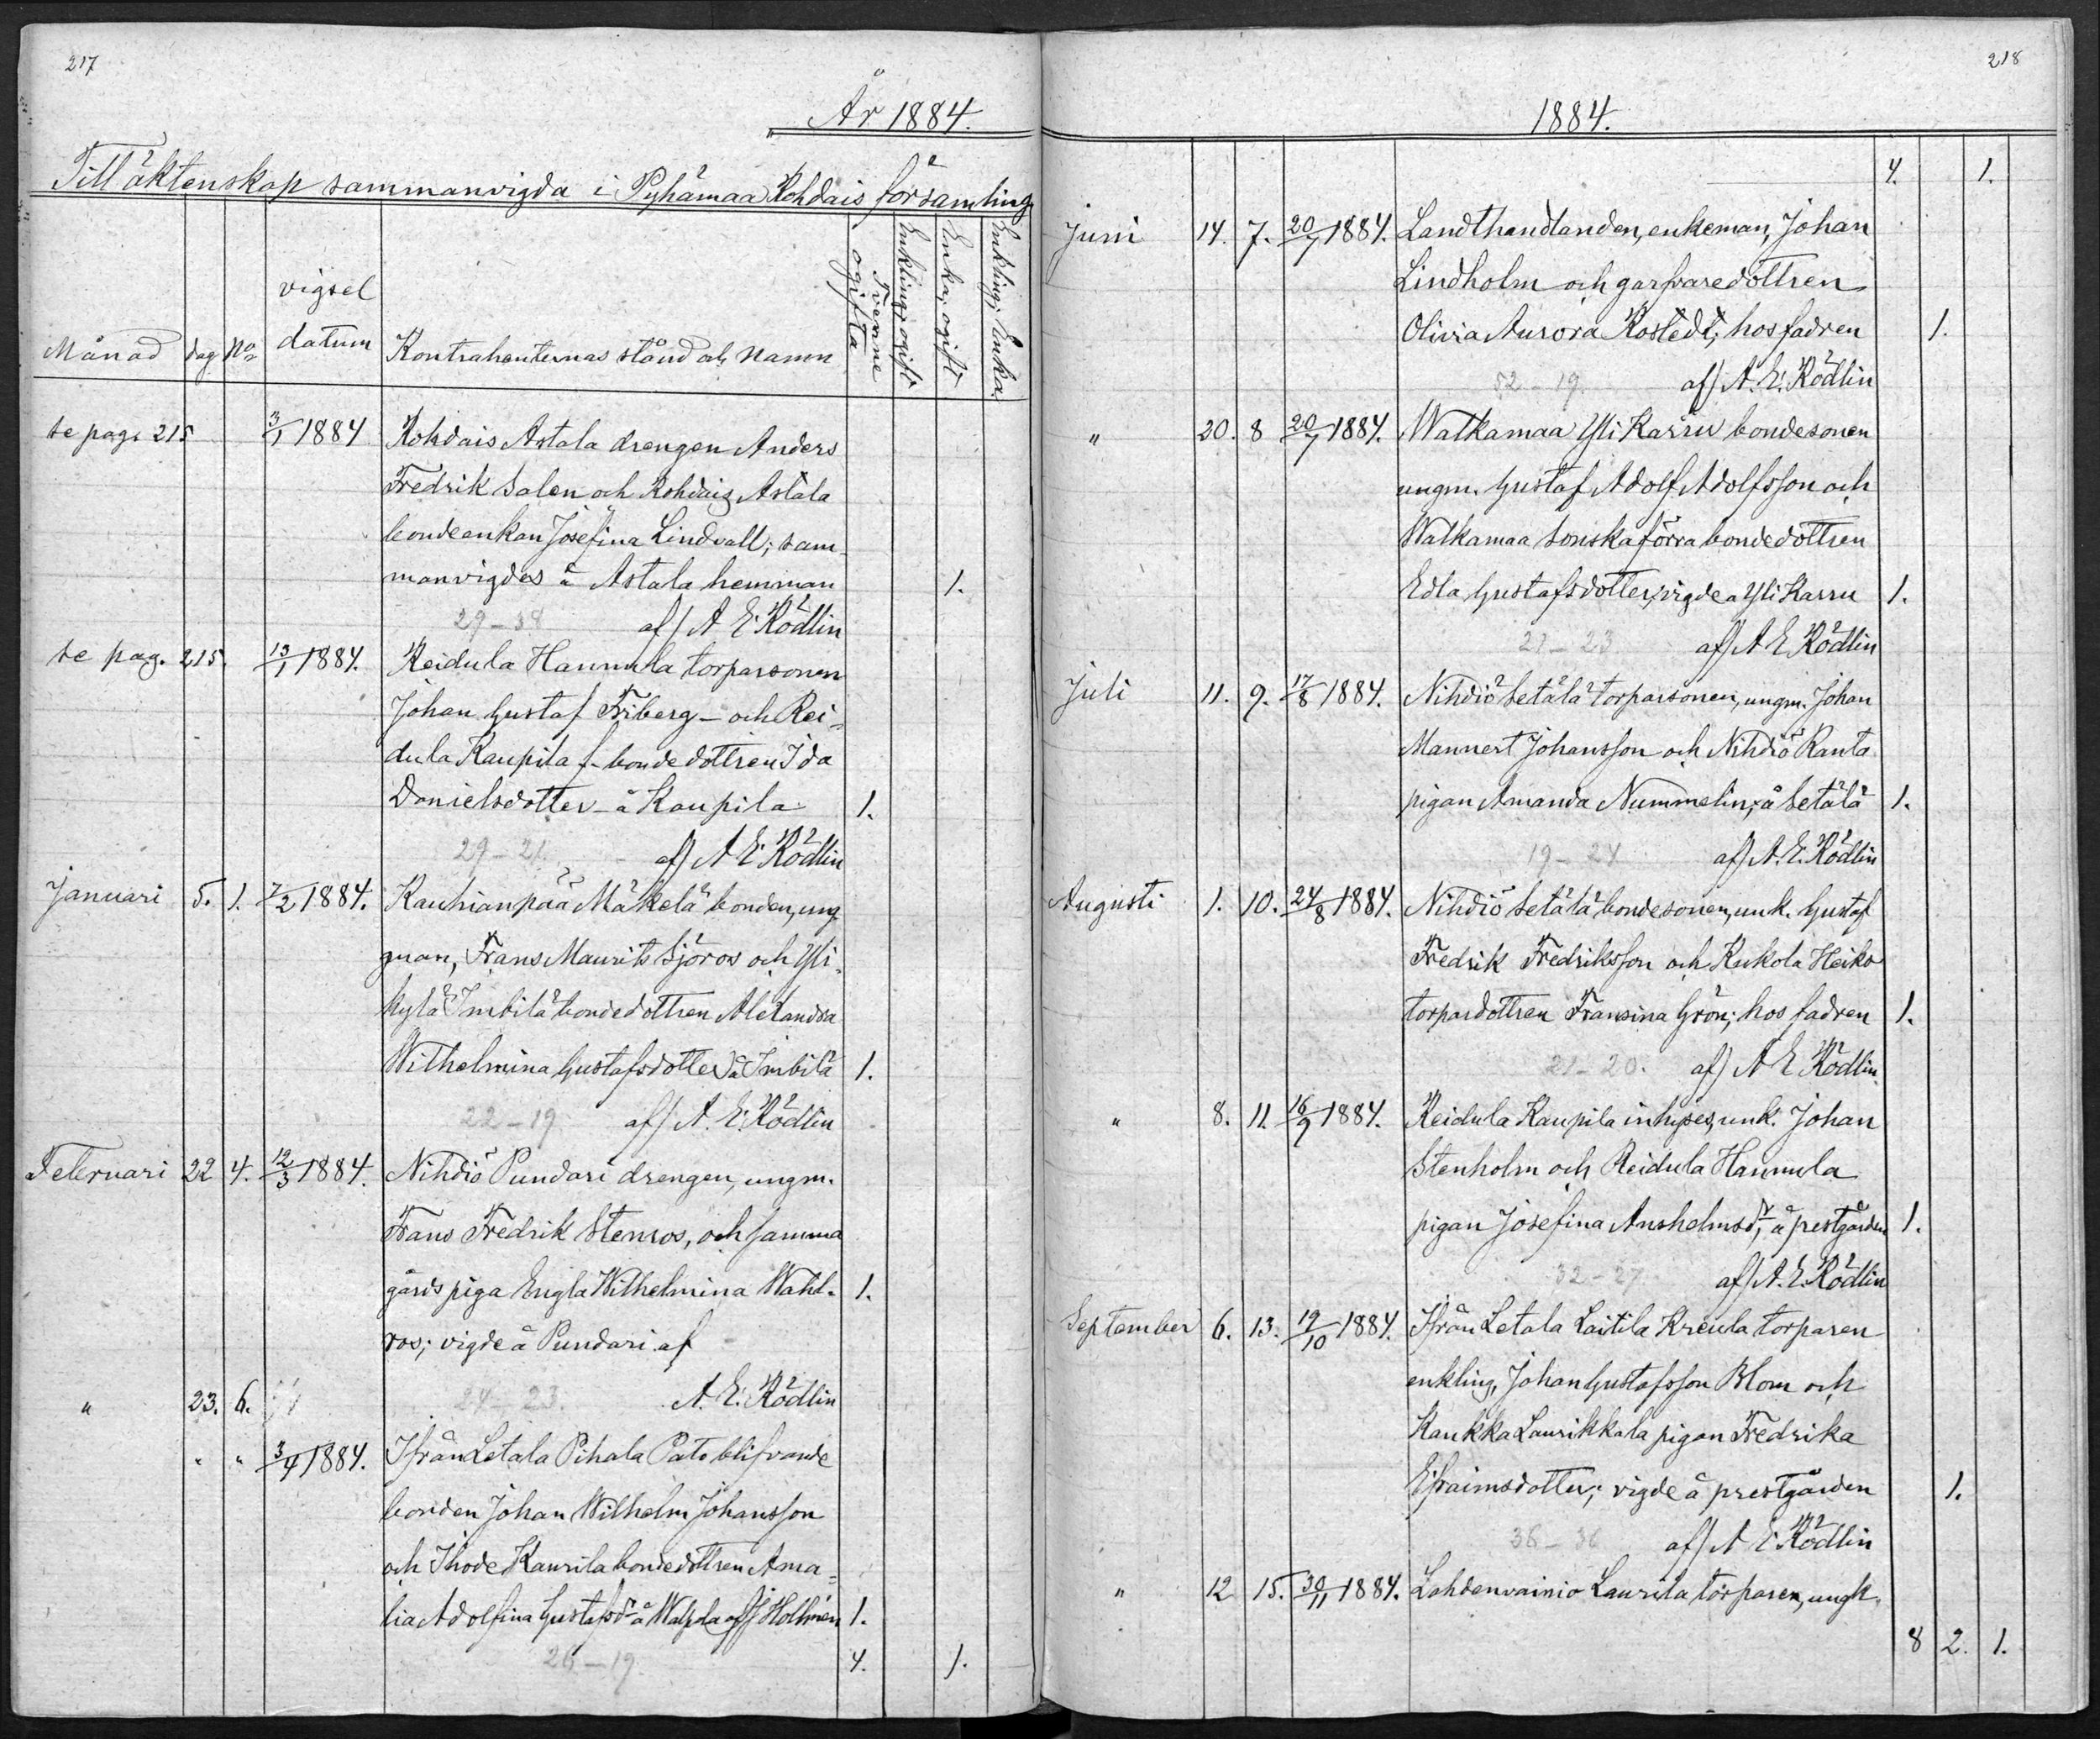 217
År 1884.
Till äktenskap sammanvigda i Pyhämaa Rohdais församling
Månad dag No vigsel datum Kontrahenternas stånd och namn Tvenne ogifta Enkling, ogift Enka, ogift Enkling, Enka.
se pag. 215 3/1 1884 Rohdais Astala drengen Anders
Fredrik Salen och Rohdais Astala
bondeenkan Josefina Lindvall; sam-
manvigdes å Astala hemman 1.
29-38 af) A. E. Rödlin
se pag. 215. 13/1 1884. Reidula Hannula torparsonen
Johan Gustaf Friberg - och Rei-
dula Kaupila f. bondedottren Ida
Danielsdotter - å Kaupila 1.
29-21. af) A. E. Rödlin
Januari 5. 1. 7/2 1884. Kauhianpää Mäkelä bonden, ung
man, Frans Maurits Sjöros och Yli-
kylä Imbilä bondedottren Alexandra
Wilhelmina Gustafsdotter) å Imbilä 1.
22-19 af) A. E. Rödlin
Februari 22 4. 12/3 1884. Nihdiö Pundari drengen, ungm.
Frans Fredrik Stenros, och samma
gårds piga Engla Wilhelmina Wahl- 1.
ros; vigde å Pundari af
" 23. 6. 24-23. A. E. Rödlin
" " 3/4 1884. Ifrån Letala Pihala Pato blifvande
bonden Johan Wilhelm Johansson
och Ihode Kaurila bondedottren Ama-
lia Adolfina Gustafsdr å af J Hollmén 1.
26-19. 4. 1.
218
1884.
4. 1.
Juni 14. 7. 20/7 1884. Landthandlanden, enkeman, Johan
Lindholm och garfvaredottren
Olivia Aurora Rostedt; hos fadren 1.
52-19. af) A. E. Rödlin
" 20. 8 20/7 1884. Walkamaa Yli Karru bondesonen
ungm. Gustaf Adolf Adolfsson och
Walkamaa Sonska förra bondedottren
Edla Gustafsdotter; vigde å Yli Karru 1.
21-23 af) A E Rödlin
Juli 11. 9. 17/8 1884. Nihdiö Setälä torparsonen, ungm. Johan
Mannert Johansson och Nihdiö Ranta
pigan Amanda Nummelin; å Setälä 1.
19-24 af) A. E. Rödlin
Augusti 1. 10. 24/8 1884. Nihdiö Setälä bondesonen, unk. Gustaf
Fredrik Fredriksson och Kukola Heiko
torpardottren Fransina Grön; hos fadren 1.
21-20. af) A E Rödlin
" 8. 11. 16/9 1884. Reidula Kaupila inhyses, unk. Johan
Stenholm och Reidula Hannula
pigan Josefina Anshelmsdr, å prestgården 1.
32-27 af) A. E. Rödlin
September 6. 13. 19/10 1884. Ifrån Letala Laitila Kreula torparen
enkling, Johan Gustafsson Blom och
Kaukka Laurikkala pigan Fredrika
Efraimsdotter; vigde å prestgården 1.
36-36 af) A E Rödlin
" 12 15. 30/11 1884. Lahdenvainio Laurila torparen, ungk.
8 2. 1.